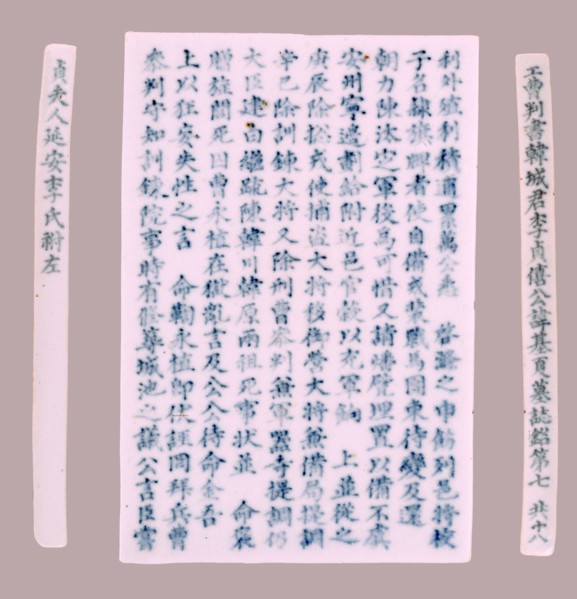 工曹判書韓城君李貞僖公諱基夏墓誌銘第七 共十八
利外殖利積逋累萬公悉 啓蠲之申飭列邑將校
子名者使自備戎裝戰馬團束待變及還
朝力陳軍後爲可惜又請埋置以備不虞
安州寧邊劃給附近邑官穀以充軍餉 上並從之
庚辰除捴戎使捕盜大將移御營大將兼備局提調
辛巳除訓鍊大將又除刑曹參判兼軍器寺提調仍
大臣建白繼疏陳韓川韓原兩祖死事狀並 命褒
贈旌閭死囚曹永植在獄亂言及公公待命金吾
上以狂妄失性之言 命鞫永植卽伏誣罔拜兵曹
參判守知訓鍊院事時有修築城池之議公言臣嘗
貞夫人延安李氏祔左